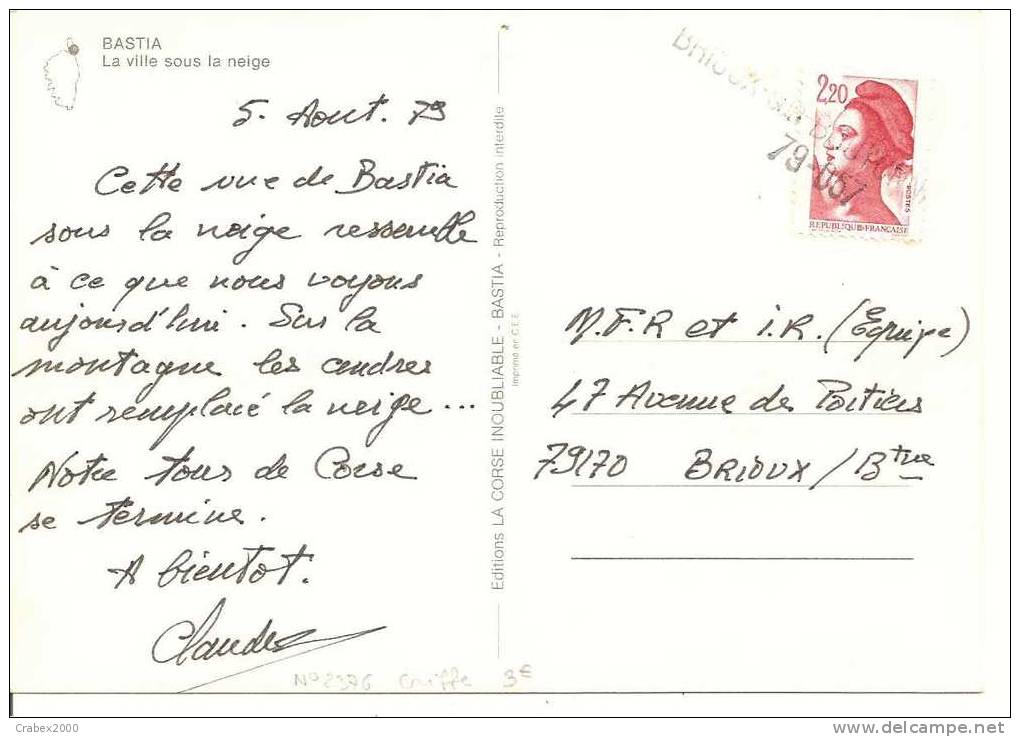 BASTIA
La ville sous la neige
5. Aout. 79
Cette vue de Bastia
sous la neige ressemble
à ce que nous voyons
aujourd'hui. Sur la
montagne les cendres
ont remplacé la neige...
Notre tour de Corse
se termine.
A bientot.
Claude
Editions LA CORSE INOUBLIABLE - BASTIA - Reproduction interdite
Imprimé en C.E.E.
BRIOUX-SUR BOUTONNE
79-057
2,20
POSTES
REPUBLIQUE FRANÇAISE
M.F.R et I.R. (Equipe)
47 Avenue de Poitiers
79170 BRIOUX / Btne
N° 2376 Griffe 3€
Crabex2000
http://www.delcampe.net